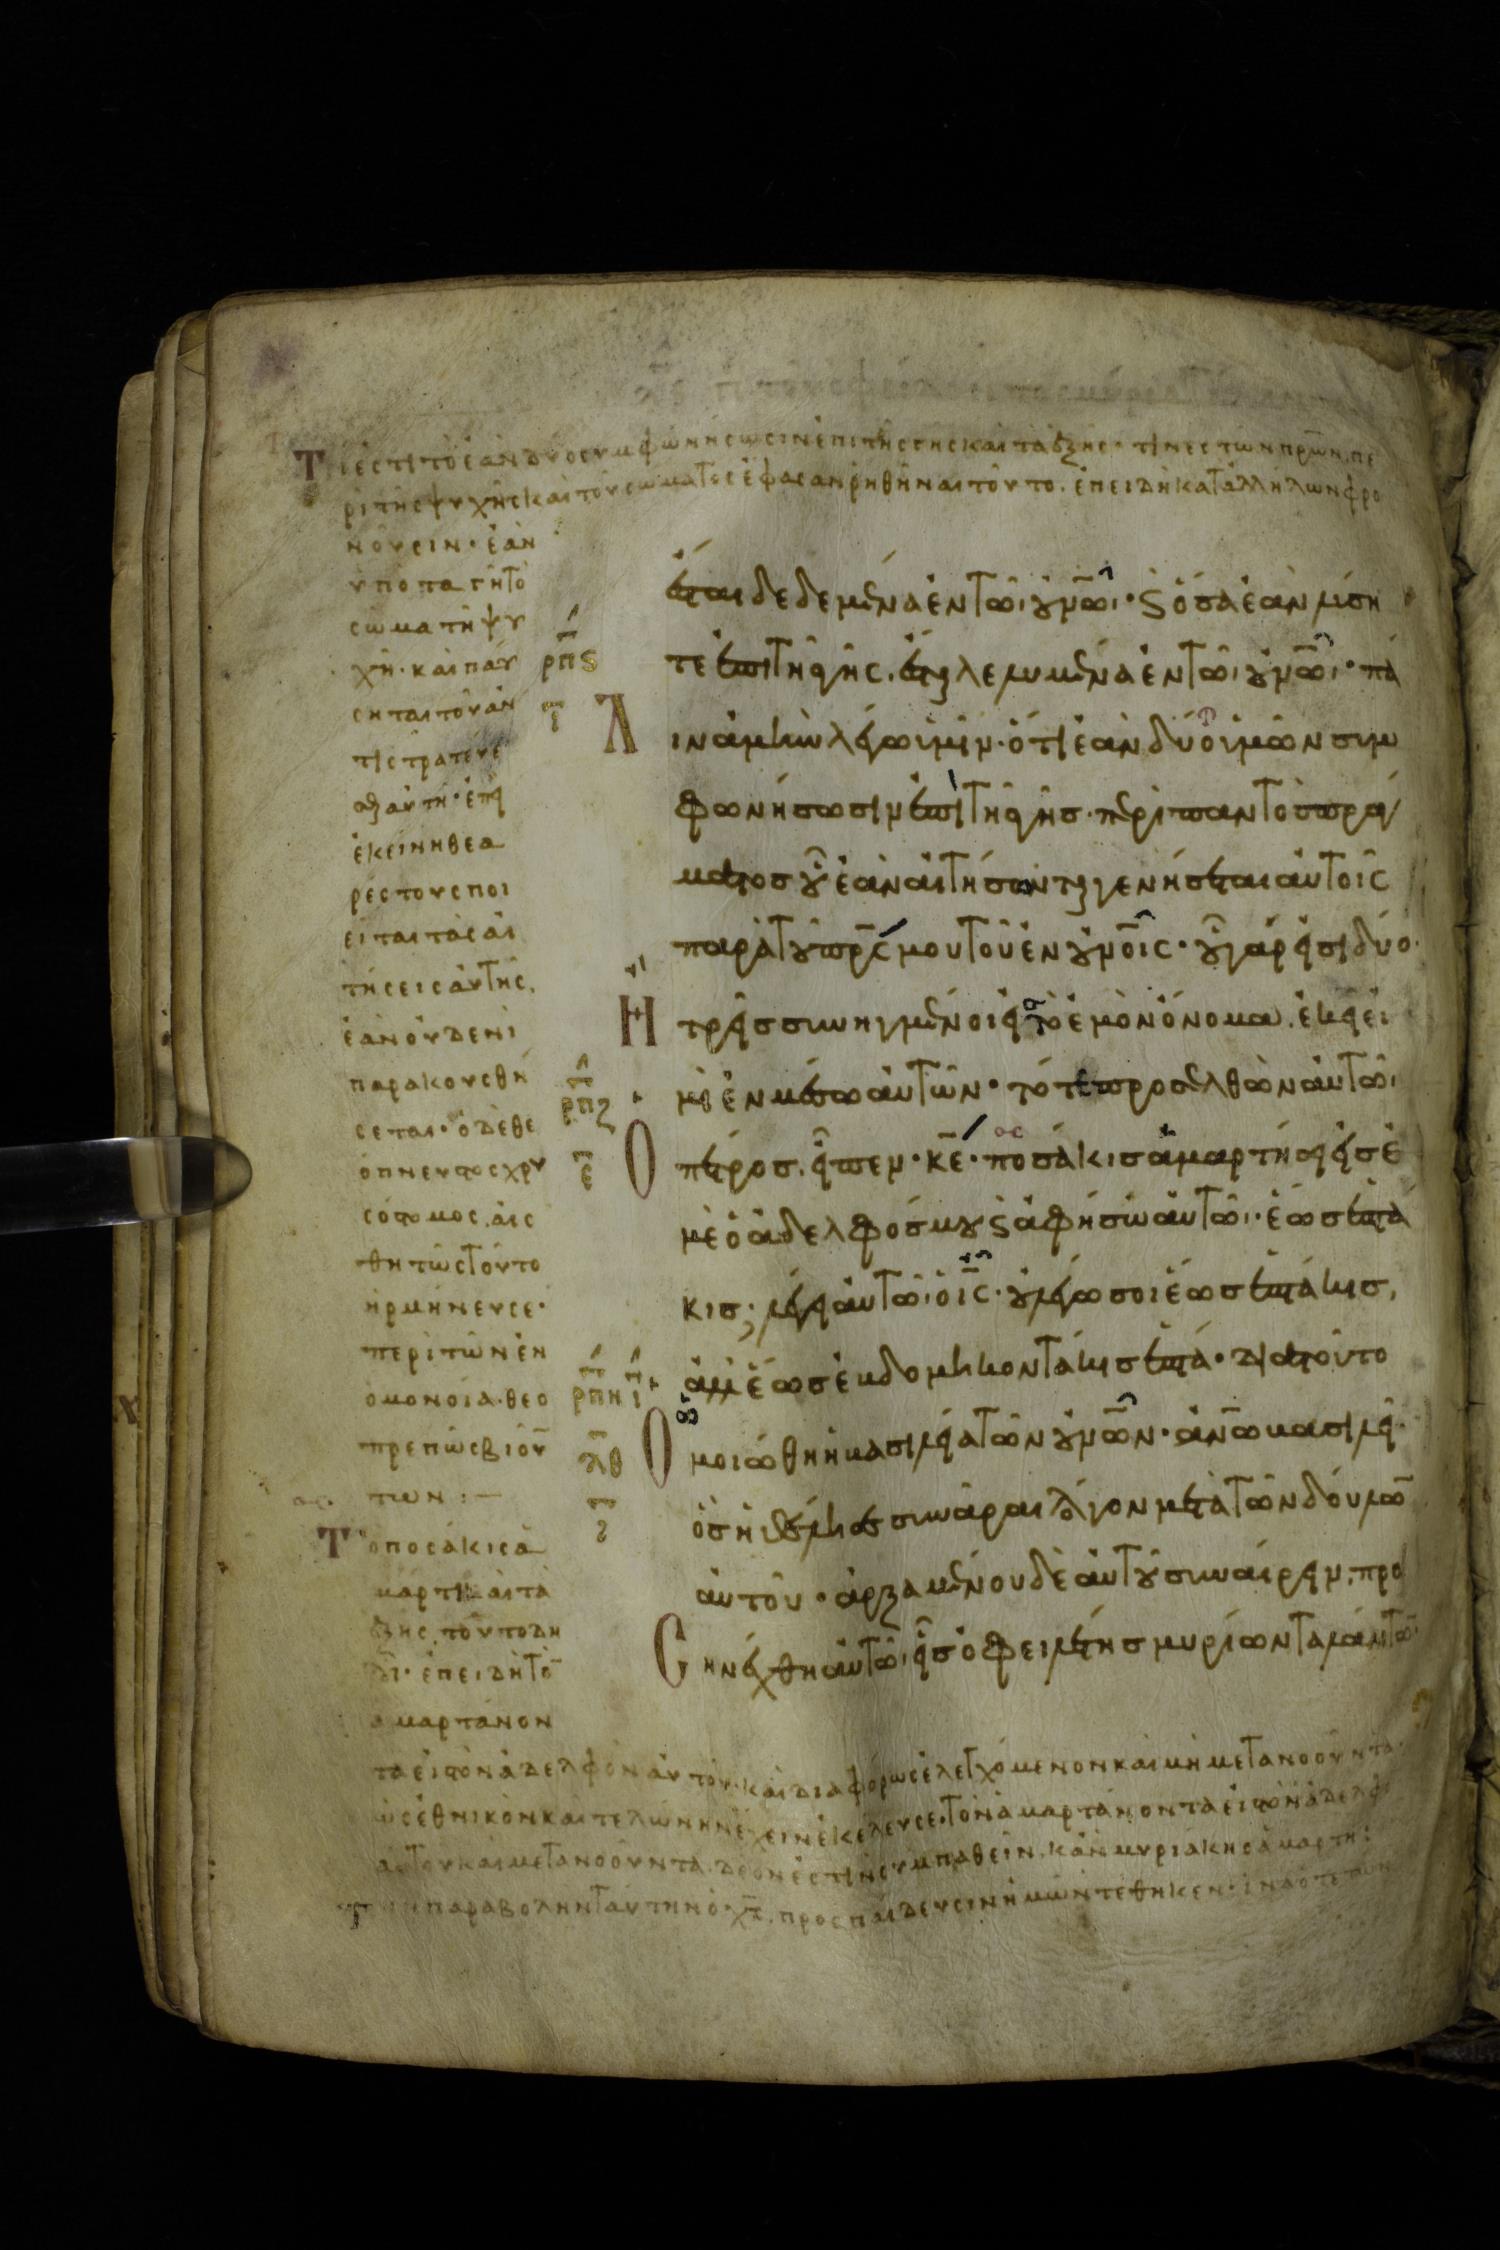 Τί ἐστι τὸ ἐὰν δύο συμφωνήσωσιν ἐπὶ τῆς γῆς καὶ τὰ ἑξῆς· τινὲς τῶν πρ̅ων, πε
ρὶ τῆς ψυχῆς καὶ τοῦ σώματος ἔφασαν ῥηθῆναι τοῦτο. ἐπειδὴ κατ' ἀλλήλων φρο
νοῦσιν· ἐὰν
ὑποταγῆ τὸ
σῶμα τῆ ψυ
χῆ· καὶ παύ
σηται τοῦ ἀν
τιστρατεύε
σθαι αὐτῆ· ἐπεὶ
ἐκείνη θεα
ρέστους ποι
εῖται τὰς αἰ
τήσεις αὐτῆς.
ἐὰν οὐδενὶ
παρακουσθή
σεται· ὁ δὲ θε
όπνευστος χρυ
σόστομος, αἰσ
θητῶς τοῦτο
ἡρμήνευσε·
περὶ τῶν ἐν
ὁμονοία· θεο
πρεπῶς βιούν
των :—
Τὸ ποσάκις ἁ
μάρτη καὶ τὰ
ἑξῆς, τοῦτο δη
λοῖ· ἐπειδὴ τὸν
ἁμαρτάνον
τα εἰς τὸν ἀδελφὸν αὐτοῦ· καὶ διαφόρως ἐλεγχόμενον καὶ μὴ μετανοοῦντα·
ὡς ἐθνικὸν καὶ τελώνην ἔχειν ἐκέλευσε· τὸν ἁμαρτάνοντα εἰς τὸν ἀδελφὸ
αὐτοῦ καὶ μετανοοῦντα· δέον ἐστὶν συμπαθεῖν. κἂν μυριάκης ἁμάρτη:
Τὴν παραβολὴν ταύτην ὁ χς̅, πρὸς παίδευσιν ἡμῶν τέθηκεν· ἵνα ὅτε
ἔσται δεδεμένα ἐν τῶ οὐν̅ω· ϛ ὅσα ἐὰν λύση
τε ἐπὶ τῆς γῆς, ἔσται λελυμένα ἐν τῶ οὐν̅ω· πά
ρπϛ
Λιν ἀμὴν λέγω ὑμῖν· ὅτι ἐὰν δύο ὑμῶν συμ
φωνήσωσιν ἐπὶ τῆς γῆς· περὶ παντὸς πρά
γματος οὗ ἐὰν αἰτήσωνται γενήσεται αὐτοῖς
παρὰ τοῦ πρ̅ς μου τοῦ ἐν οὐν̅οις· οὗ γάρ εἰσι δύο
Ἢ τρεῖς συνηγμένοι εἰς τὸ ἐμὸν ὄνομα, ἐκεῖ εἰ
μὶ ἐν μέσω αὐτῶν· τότε προσελθὼν αὐτῶ
ρπζ
Ὁ πέτρος, εἶπεν· κ̅ε· ποσάκις ἁμαρτήσει εἰς ἐ
μὲ ὁ ἀδελφός μου ϛ ἀφήσω αὐτῶ· ἕως ἑπτά
κις; λέγει αὐτῶ ὁ ι̅ς· οὐ λέγω σοι ἕως ἑπτάκις,
ἀλλ' ἕως ἑβδομηκοντάκις ἑπτά· διὰ τοῦτο
ρπη
Ὁμοιώθη ἡ βασιλεία τῶν οὐν̅ων· ἀν̅ω βασιλεῖ·
ὃς ἠθέλησε συνᾶραι λόγον μετὰ τῶν δούλων
αὐτοῦ· ἀρξαμένου δὲ αὐτοῦ συναίρειν, προ
Σηνέχθη αὐτῶ εἷς ὀφειλέτης μυρίων ταλάντων